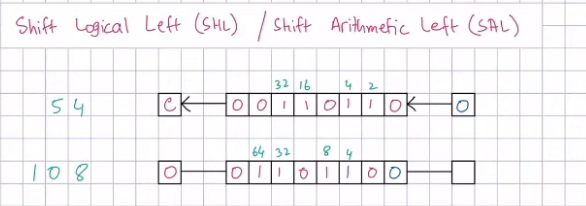 Shift Logical Left (SHL) / Shift Arithmetic Left (SAL)
32 16 4 2
54 C 0 0 1 1 0 1 1 0 0
64 32 8 4
108 0 0 1 1 0 1 1 0 0